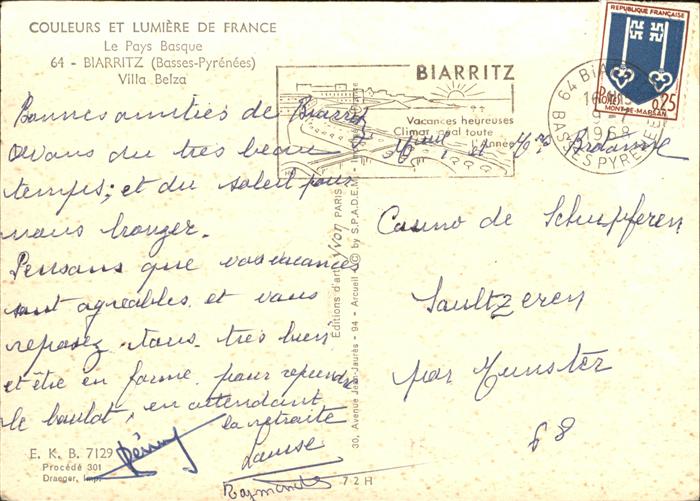 COULEURS ET LUMIÈRE DE FRANCE
Le Pays Basque
64 - BIARRITZ (Basses-Pyrénées)
Villa Belza
Bonnes amitiés de Biarritz
avons du très beau
temps, et du soleil pour
nous bronzer.
Pensons que vos vacances
sont agréables et vous
reposez tous très bien
et être en forme pour reprendre
le boulot, en attendant
la retraite
Louise
Raymonde
E. K. B. 7129
Procédé 301
Draeger, Imp.
72H
Editions d'art Yvon PARIS
30, Avenue Jean-Jaurès - 94 - Arcueil
© by S.P.A.D.E.M.
BIARRITZ
Vacances heureuses
Climat idéal toute
l'Année
64 BIARRITZ
1968
BASSES PYRENEES
REPUBLIQUE FRANÇAISE
POSTES 0,25
MONT-DE-MARSAN
et
Casino de
par Munster
68